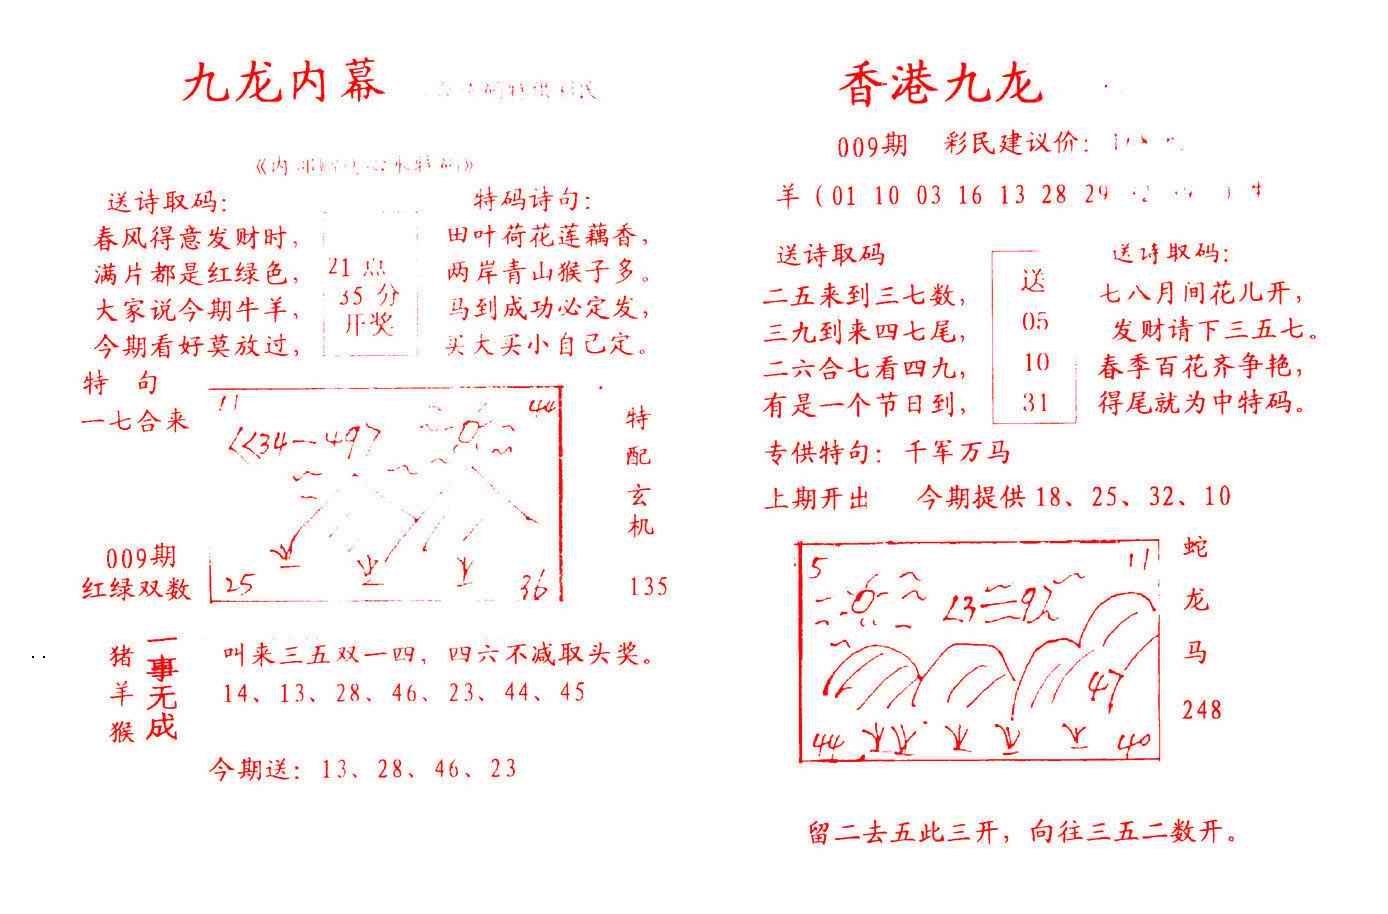 九龙内幕
送诗取码：
春风得意发财时，
满片都是红绿色，
大家说今期牛羊，
今期看好莫放过，
21 点
35 分
开奖
特码诗句：
田叶荷花莲藕香，
两岸青山猴子多。
马到成功必定发，
买大买小自己定。
特 句
一七合来
009期
红绿双数
11
44
34—49
25
36
特
配
玄
机
135
猪
羊
猴
一事无成
叫来三五双一四，四六不减取头奖。
14、13、28、46、23、44、45
今期送：13、28、46、23
香港九龙
009期 彩民建议价：
羊（01 10 03 16 13 28 29
送诗取码
二五来到三七数，
三九到来四七尾，
二六合七看四九，
有是一个节日到，
送
05
10
31
送诗取码：
七八月间花儿开，
发财请下三五七。
春季百花齐争艳，
得尾就为中特码。
专供特句：千军万马
上期开出 今期提供18、25、32、10
5
11
47
44
40
蛇
龙
马
248
留二去五此三开，向往三五二数开。